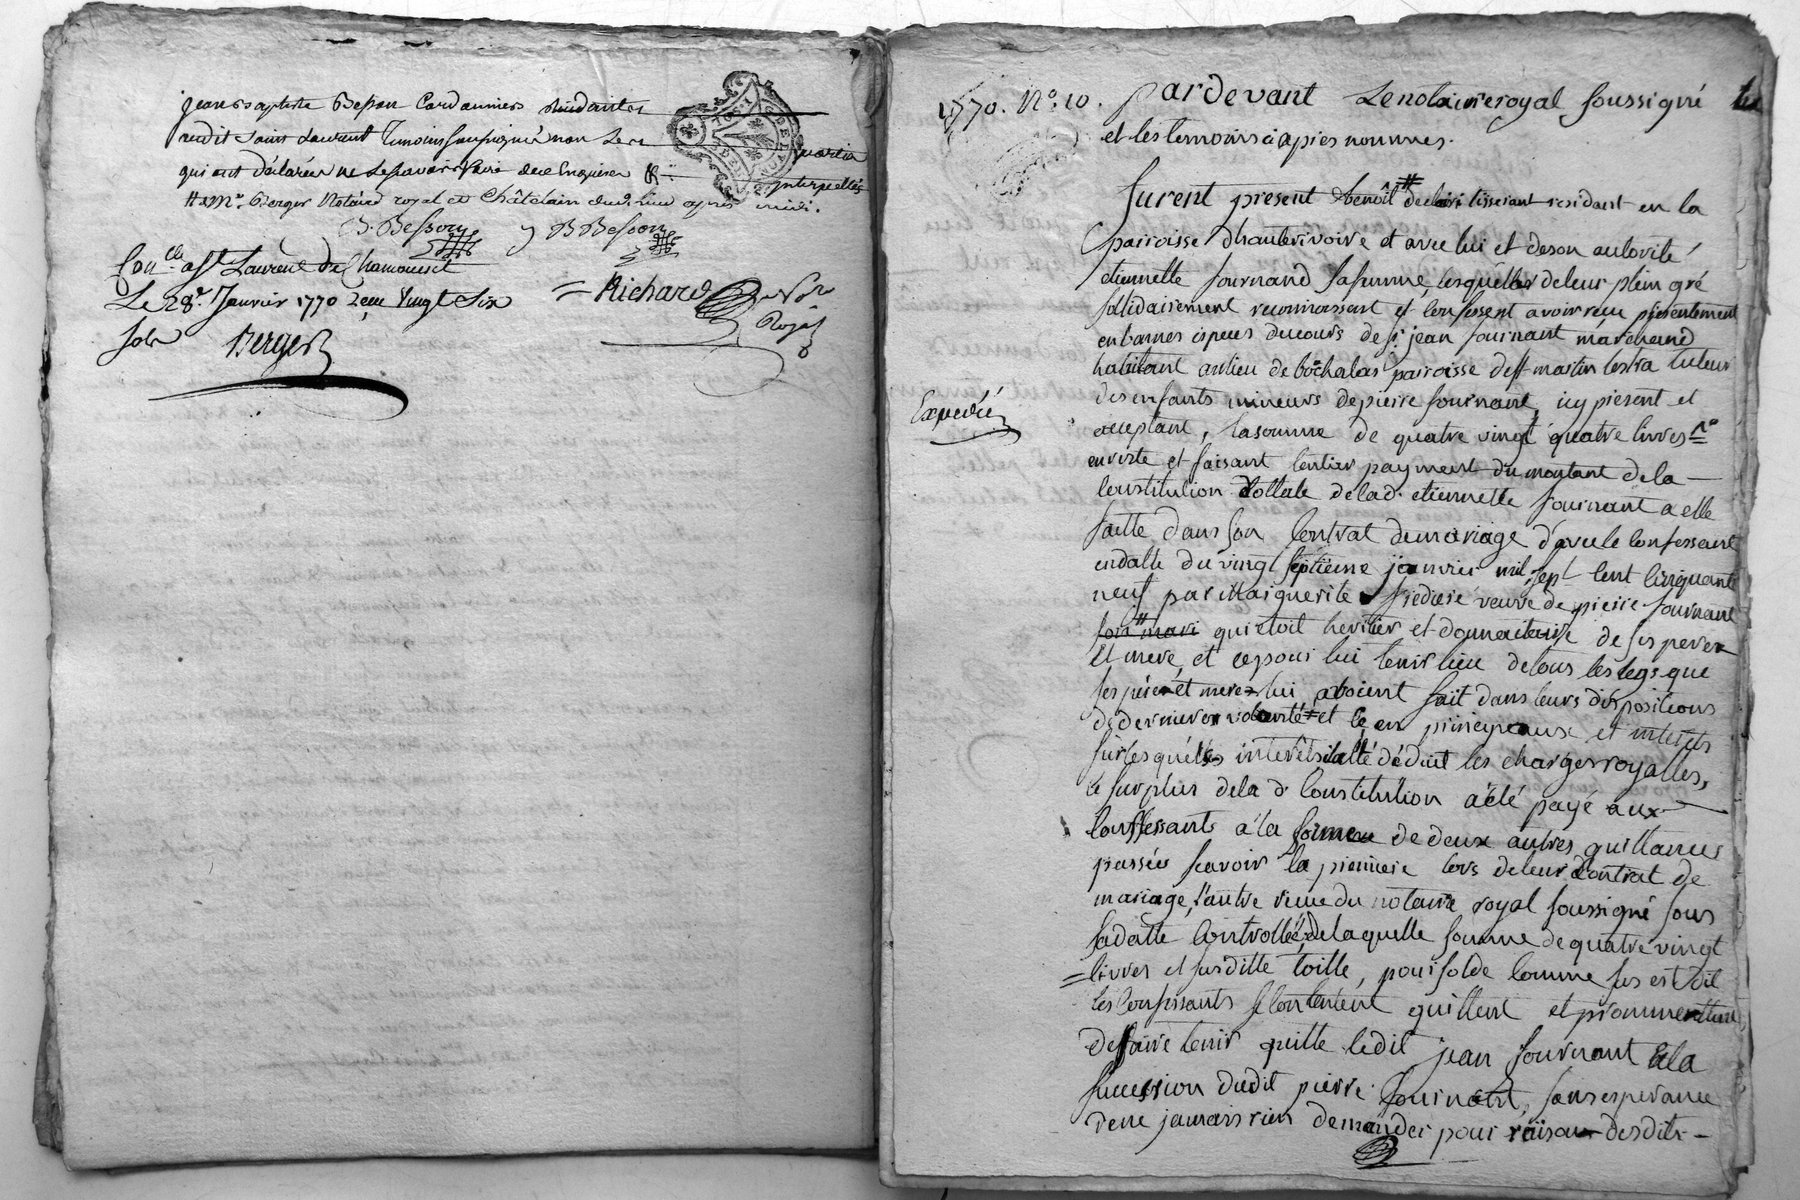 jean Baptiste Besson Cordonniers Residants
audit saint Laurent Temoins non
qui ont déclarés ne le scavoir faire de ce Enquis
interpellés
Mr. Berger Notaire royal et Châtelain dudit lieu après midi.
B. Besson B Besson
Conlle. a st Laurent de Chamousset
Le 28e. Janvier 1770 Vingt Six
sols
Berger
Richard
Royal
1770. No. 10.
pardevant Le notaire royal soussigné
et les temoins ci apres nommes.
furent present benoît tisserant residant en la
parroisse d'hauterivoire et avec lui et de son autorité
etiennette fournand sa femme, lesquelles de leur plein gré
solidairement reconnoissent et confessent avoir recu présentement
en bonnes espéces du cours de sr. jean fournant marchand
habitant au lieu de bochalas parroisse de st martin lestra tuteur
des enfants mineurs de pierre fournant, icy present et
Expedié
acceptant, la somme de quatre vingt quatre livres
en reste et faisant l'entier payment du montant de la
Constitution dottale de la d. etiennette fournant a elle
faitte dans son Contrat de mariage d'avec le confessant
en datte du vingt septieme janvier mil sept cent cinquante
neuf par Marguerite veuve de pierre fournant
son mari qui etoit heritier et donnataire de ses peres
et mere, et ce pour lui tenir lieu de tous les legs que
ses péres et meres lui avoient fait dans leurs dispositions
de dernieres volonté et ce en principeaux et interets
sur lesquéls interéts a été déduit les charges royalles,
le surplus de la d. Constitution a été payé aux
Confessants a la de deux autres quittances
passées scavoir la premiere lors de leur Contrat de
mariage, l'autre recue du notaire royal soussigné sous
sa datte Controllée, de laquelle somme de quatre vingt
livres et susditte toille, pour solde comme sus est dit
les Confessants se contentent quittent et prommettent
de faire tenir quitte ledit jean fournant et la
succession dudit pierre fournant, sans esperance
de ne jamais rien demander pour raison desdits